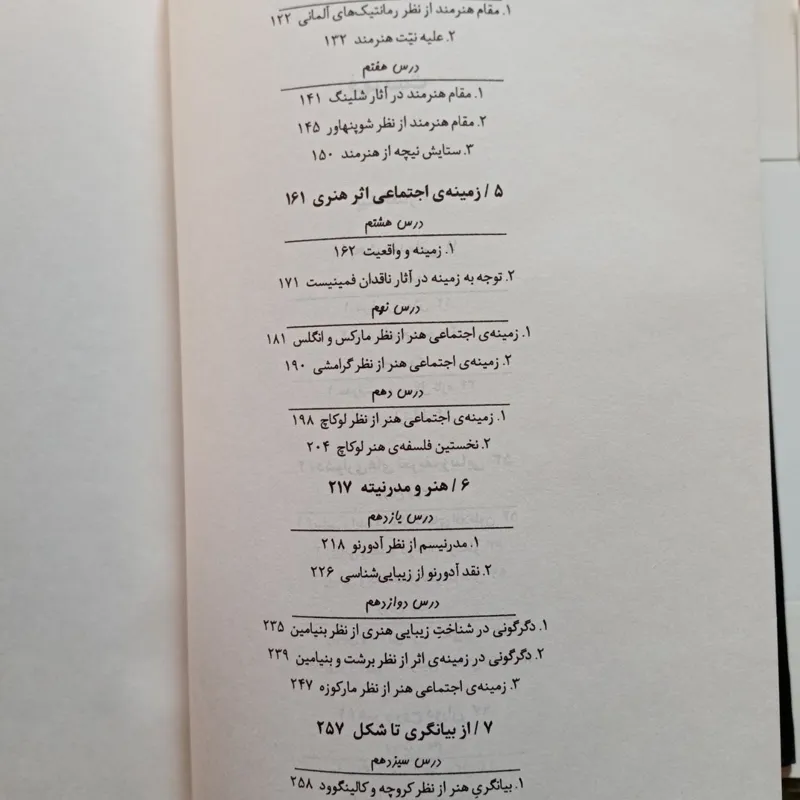 ۱. مقام هنرمند از نظر رمانتیک‌های آلمانی ۱۲۲
۲. علیه نیّت هنرمند ۱۳۲
درس هفتم
۱. مقام هنرمند در آثار شلینگ ۱۴۱
۲. مقام هنرمند از نظر شوپنهاور ۱۴۵
۳. ستایش نیچه از هنرمند ۱۵۰
۵ / زمینه‌ی اجتماعی اثر هنری ۱۶۱
درس هشتم
۱. زمینه و واقعیت ۱۶۲
۲. توجه به زمینه در آثار ناقدان فمینیست ۱۷۱
درس نهم
۱. زمینه‌ی اجتماعی هنر از نظر مارکس و انگلس ۱۸۱
۲. زمینه‌ی اجتماعی هنر از نظر گرامشی ۱۹۰
درس دهم
۱. زمینه‌ی اجتماعی هنر از نظر لوکاچ ۱۹۸
۲. نخستین فلسفه‌ی هنر لوکاچ ۲۰۴
۶ / هنر و مدرنیته ۲۱۷
درس یازدهم
۱. مدرنیسم از نظر آدورنو ۲۱۸
۲. نقد آدورنو از زیبایی‌شناسی ۲۲۶
درس دوازدهم
۱. دگرگونی در شناختِ زیبایی هنری از نظر بنیامین ۲۳۵
۲. دگرگونی در زمینه‌ی اثر از نظر برشت و بنیامین ۲۳۹
۳. زمینه‌ی اجتماعی هنر از نظر مارکوزه ۲۴۷
۷ / از بیانگری تا شکل ۲۵۷
درس سیزدهم
۱. بیانگریِ هنر از نظر کروچه و کالینگوود ۲۵۸